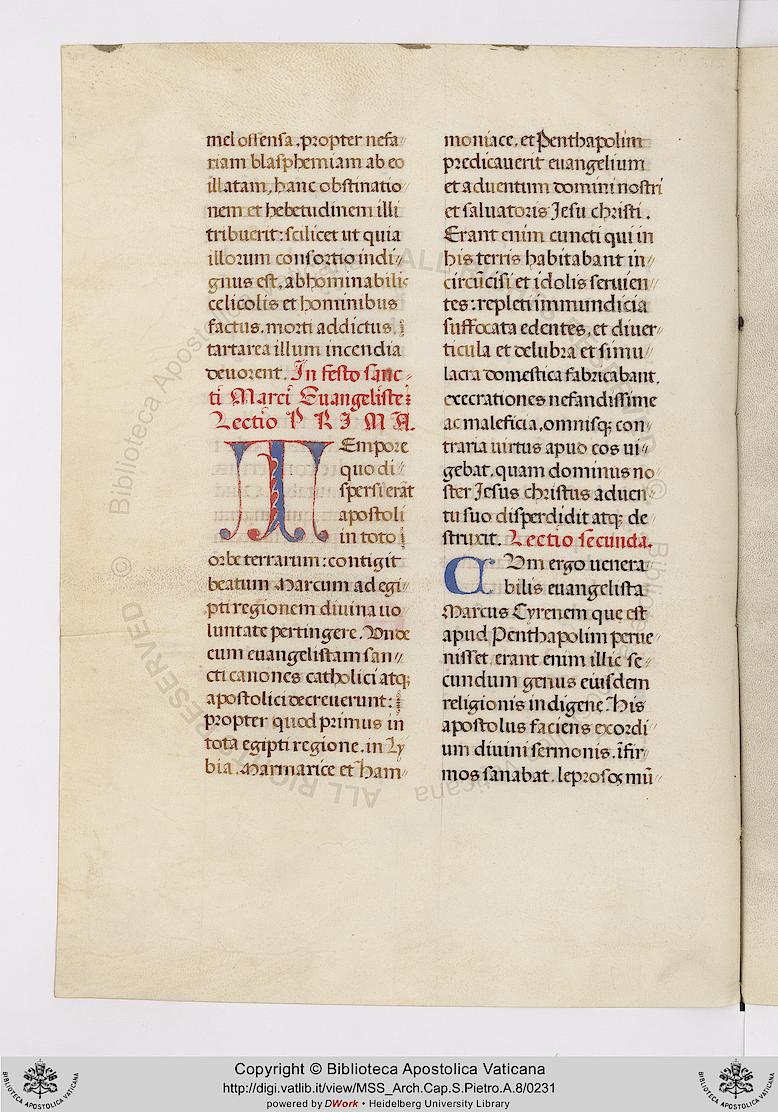 mel offensa. propter nefa-
riam blasphemiam ab eo
illatam, hanc obstinatio-
nem et hebetudinem illi
tribuerit: scilicet ut quia
illorum consortio indi-
gnus est, abhominabilis
celicolis et hominibus
factus. morti addictus.
tartarea illum incendia
devorent. In festo sanc-
ti Marci Euangeliste:
Lectio P R I M A.
TEmpore
quo di-
spersi erāt
apostoli
in toto
orbe terrarum: contigit
beatum Marcum ad egi-
pti regionem diuina uo-
luntate pertingere. Vnde
eum euangelistam san-
cti canones catholici atq;
apostolici decreuerunt:
propter quod primus in
tota egipti regione. in Ly-
bia. Marmarice et Ham-
moniace. et Penthapolim
predicauerit euangelium
et aduentum domini nostri
et saluatoris Jesu christi.
Erant enim cuncti qui in
his terris habitabant in-
circūcisi et idolis seruien-
tes: repleti immundicia
suffocata edentes, et diuer-
ticula et delubra et simu-
lacra domestica fabricabant.
execrationes nefandissime
ac maleficia, omnisq; con-
traria uirtus apud eos ui-
gebat. quam dominus no-
ster Jesus christus aduen-
tu suo disperdidit atq; de-
struxit. Lectio secunda.
CVm ergo uenera-
bilis euangelista
Marcus Cyrenem que est
apud Penthapolim perue-
nisset. erant enim illic se-
cundum genus eiusdem
religionis indigene. His
apostolus faciens exordi-
um diuini sermonis. īfir-
mos sanabat. leprosos mū-
Copyright © Biblioteca Apostolica Vaticana
http://digi.vatlib.it/view/MSS_Arch.Cap.S.Pietro.A.8/0231
powered by DWork • Heidelberg University Library
BIBLIOTECA APOSTOLICA VATICANA
BIBLIOTECA APOSTOLICA VATICANA